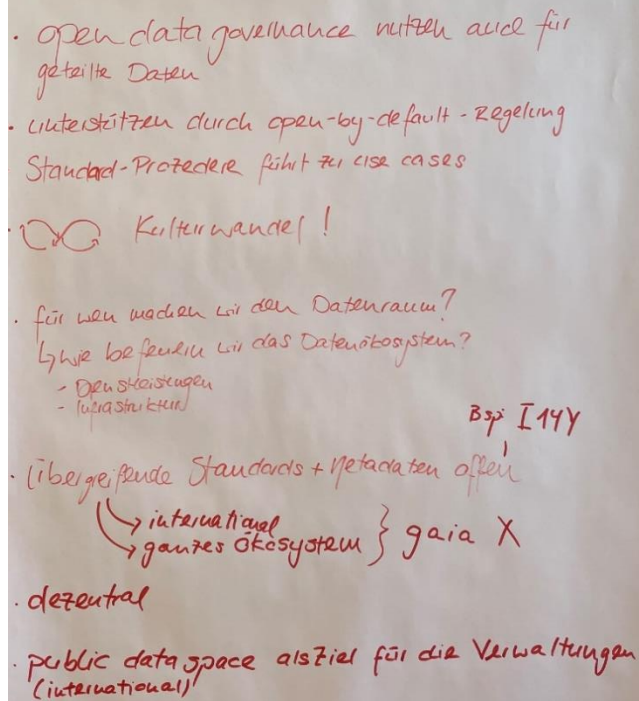 · open data governance nutzen auch für
geteilte Daten
· unterstützen durch open-by-default-Regelung
Standard-Prozedere führt zu use cases
· Kulturwandel!
· für wen machen wir den Datenraum?
↳ wie befeuern wir das Datenökosystem?
- Dienstleistungen
- Infrastruktur
Bsp I14Y
· Übergreifende Standards + Metadaten offen
→ international
→ ganzes Ökosystem } gaia X
· dezentral
· public data space als Ziel für die Verwaltungen
(international)